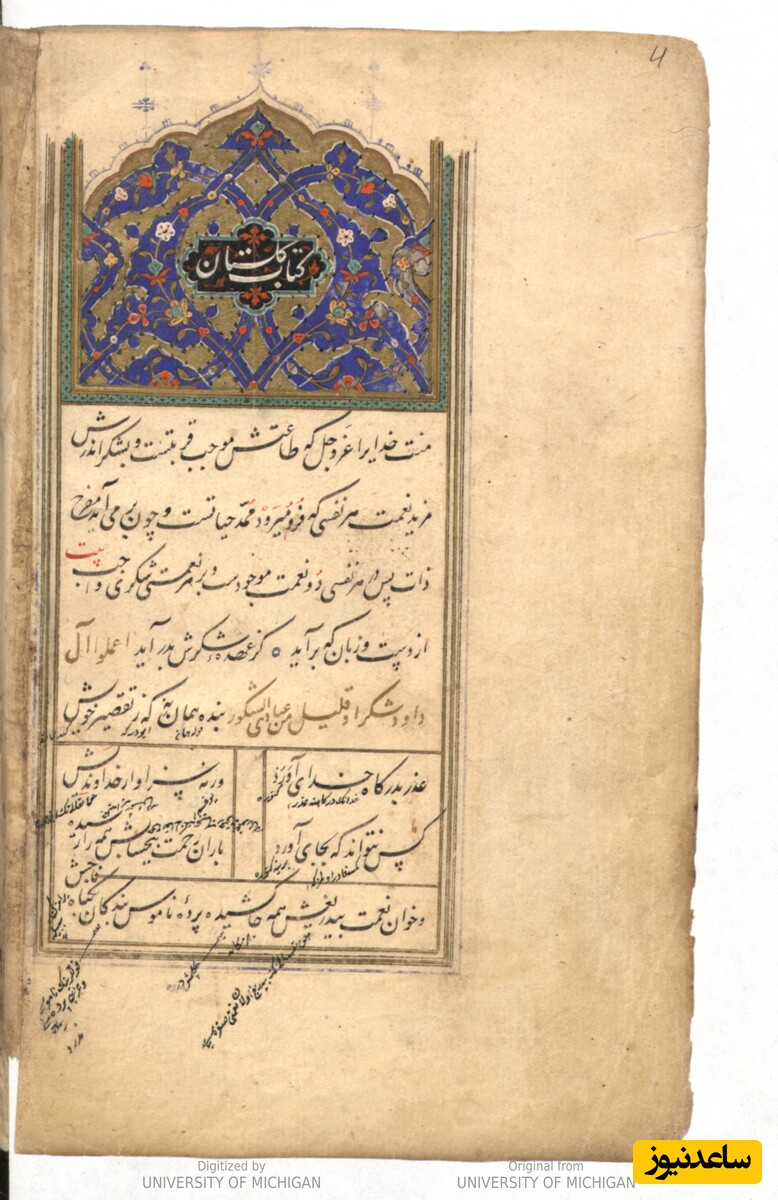 4
کتاب گلستان
منت خدایرا عز و جل که طاعتش موجب قربتست و بشکر اندرش
مزید نعمت هر نفسی که فرو میرود ممد حیاتست و چون بر می آید مفرح
ذات پس در هر نفسی دو نعمت موجودست و بر هر نعمتی شکری واجب بیت
از دست و زبان که برآید کز عهده شکرش بدر آید اعملوا آل
داود شکرا و قلیل من عبادی الشکور بنده همان به که ز تقصیر خویش
عذر بدرگاه خدای آورد ورنه سزاوار خداوندیش
کس نتواند که بجای آورد باران رحمت بیحسابش همه را رسیده
و خوان نعمت بیدریغش همه جا کشیده پردهٔ ناموس بندگان بگناه فاحش
Digitized by
UNIVERSITY OF MICHIGAN
Original from
UNIVERSITY OF MICHIGAN
ساعدنیوز